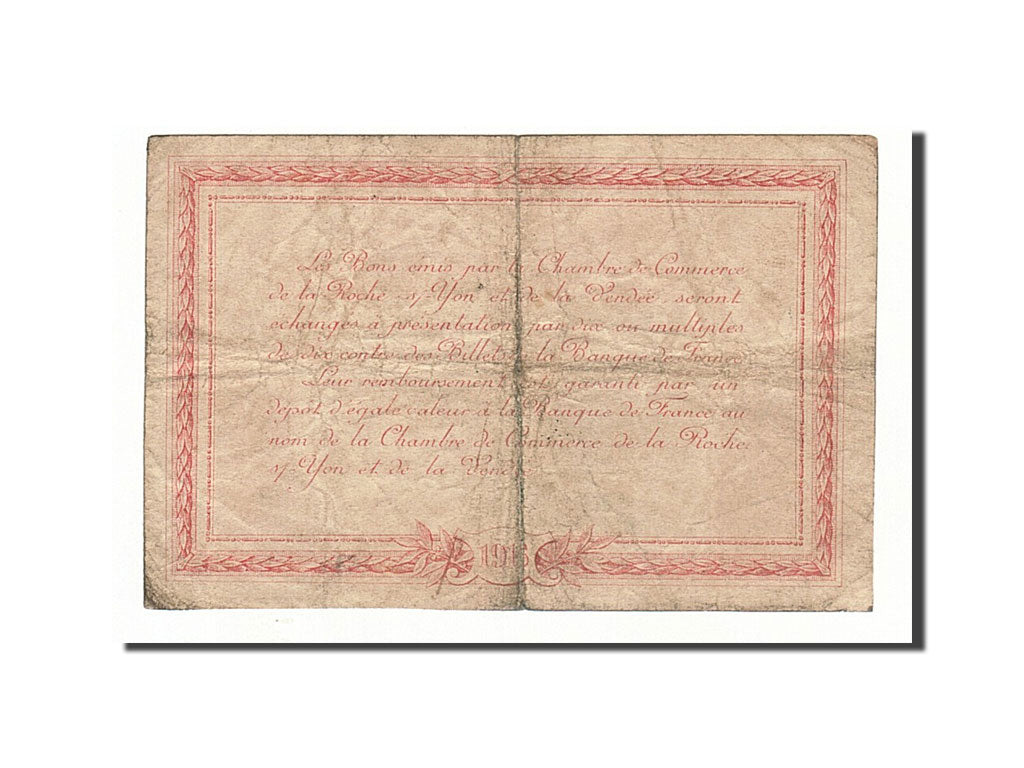 Les Bons émis par la Chambre de Commerce
de la Roche s/-Yon et de la Vendée, seront
échangés à présentation par dix ou multiples
de dix contre des Billets de la Banque de France
Leur remboursement est garanti par un
dépôt d'égale valeur à la Banque de France au
nom de la Chambre de Commerce de la Roche
s/-Yon et de la Vendée